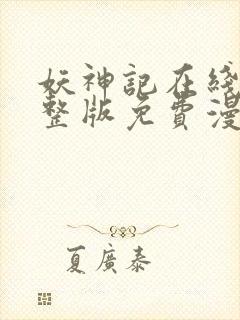 妖神記在綫
整版免費漫
夏廣泰